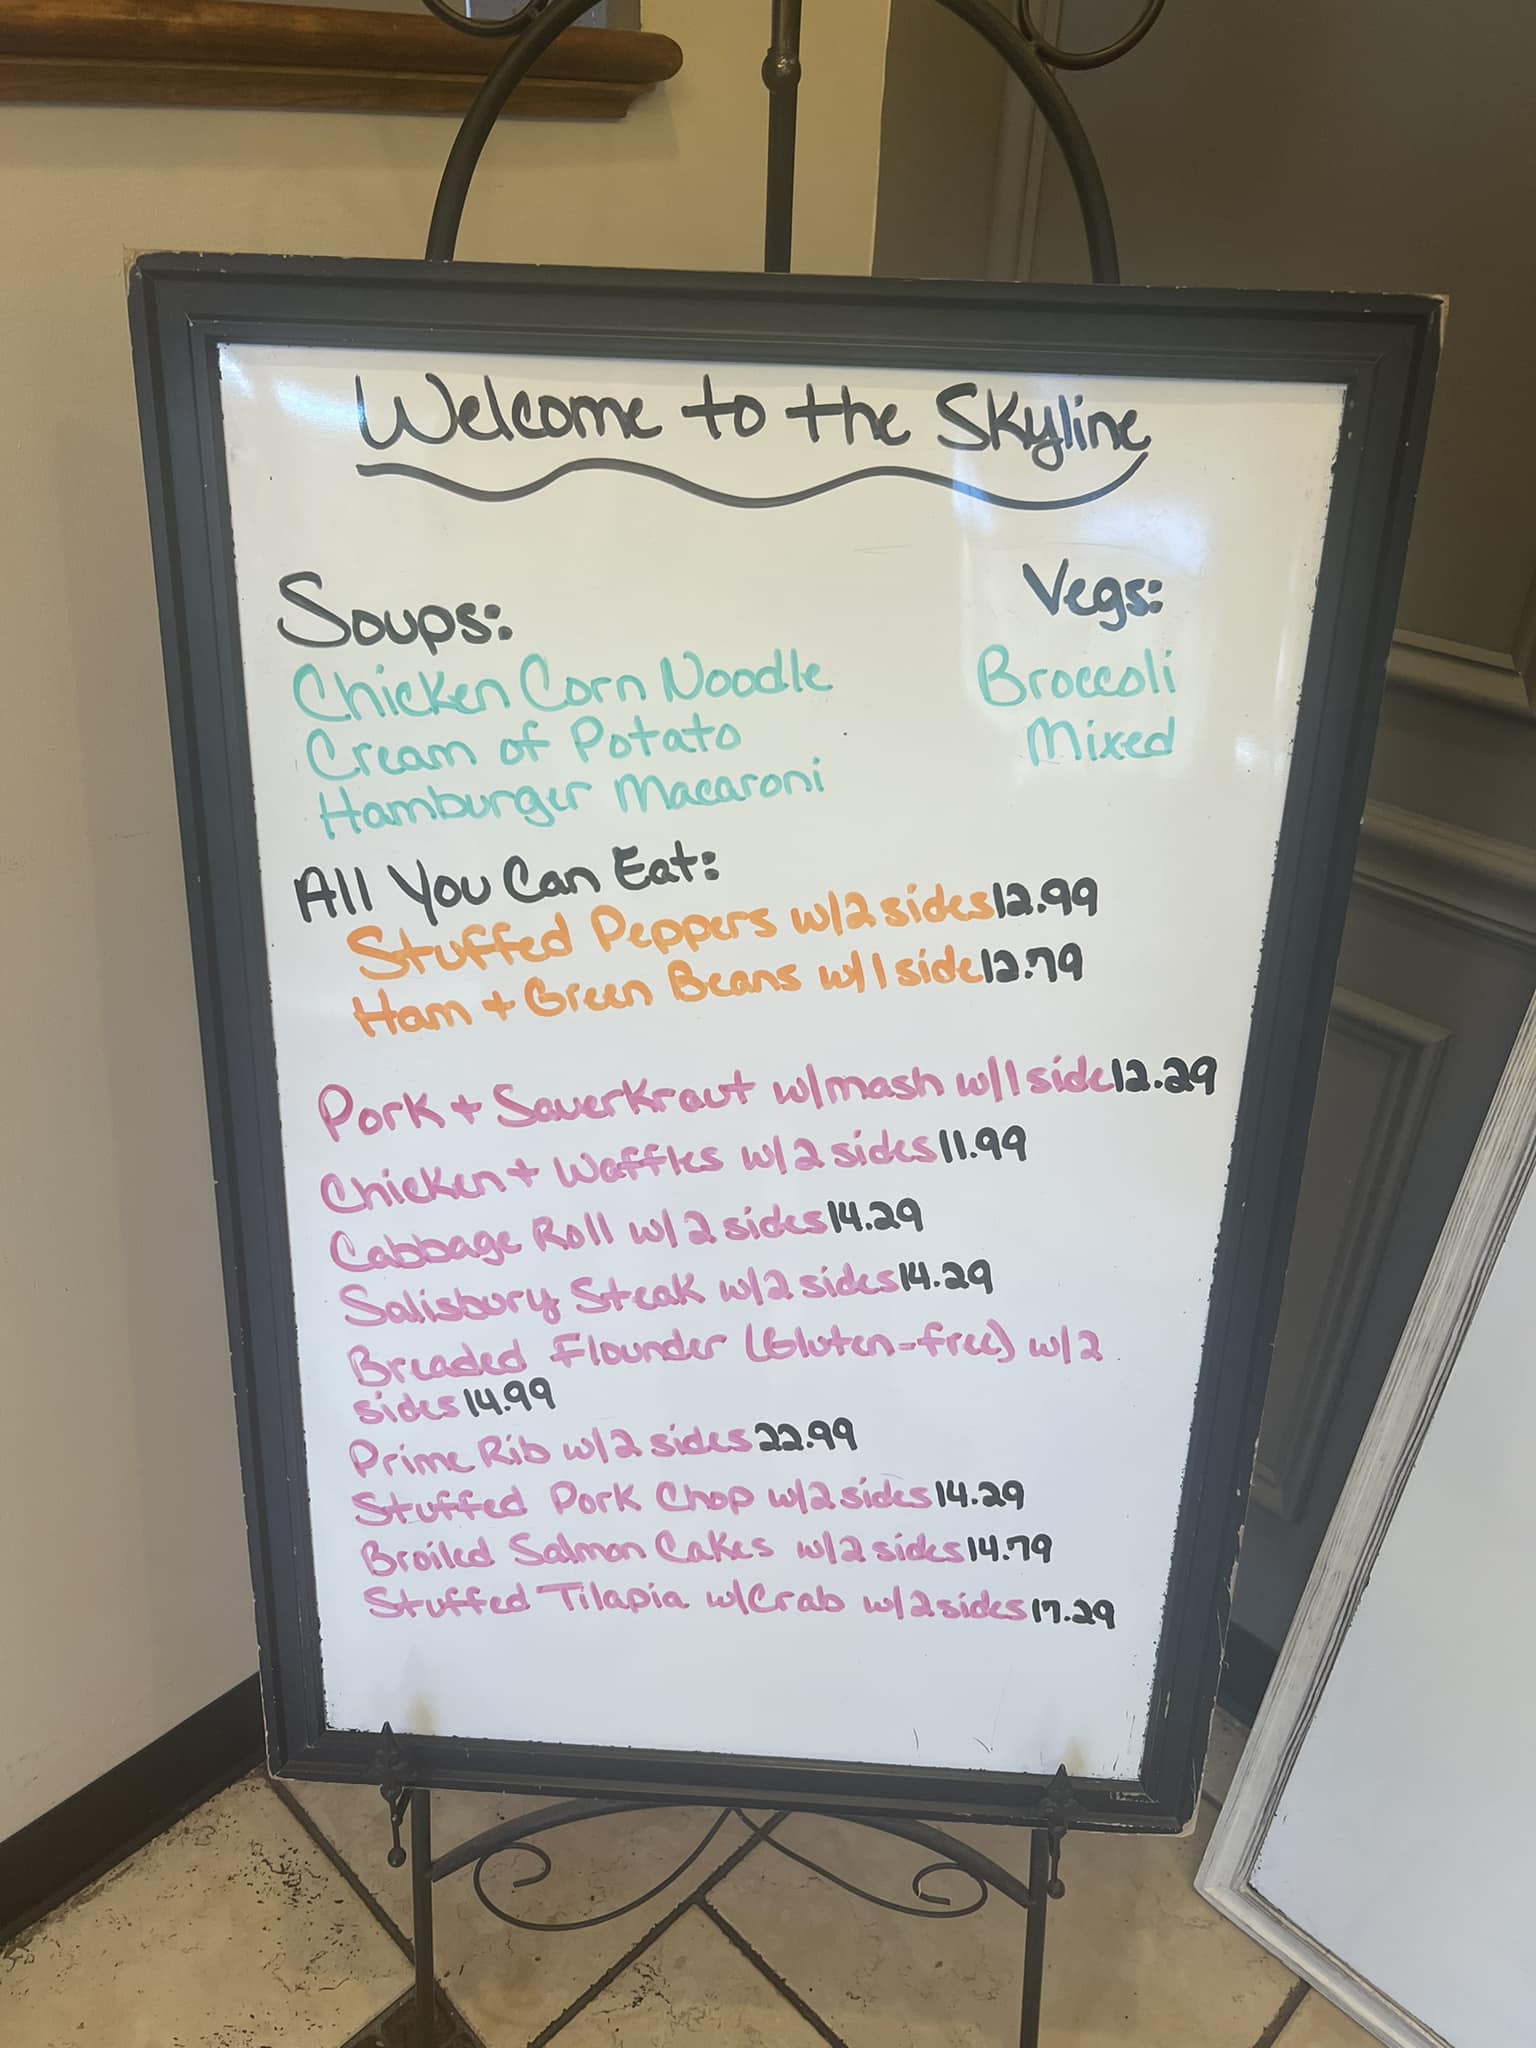 Welcome to the Skyline
Soups:
Chicken Corn Noodle
Cream of Potato
Hamburger Macaroni
Vegs:
Broccoli
Mixed
All You Can Eat:
Stuffed Peppers w/2 sides 12.99
Ham + Green Beans w/1 side 12.79
Pork + Sauerkraut w/mash w/1 side 12.29
Chicken + Waffles w/2 sides 11.99
Cabbage Roll w/2 sides 14.29
Salisbury Steak w/2 sides 14.29
Breaded Flounder (Gluten-free) w/2
sides 14.99
Prime Rib w/2 sides 22.99
Stuffed Pork Chop w/2 sides 14.29
Broiled Salmon Cakes w/2 sides 14.79
Stuffed Tilapia w/Crab w/2 sides 17.29